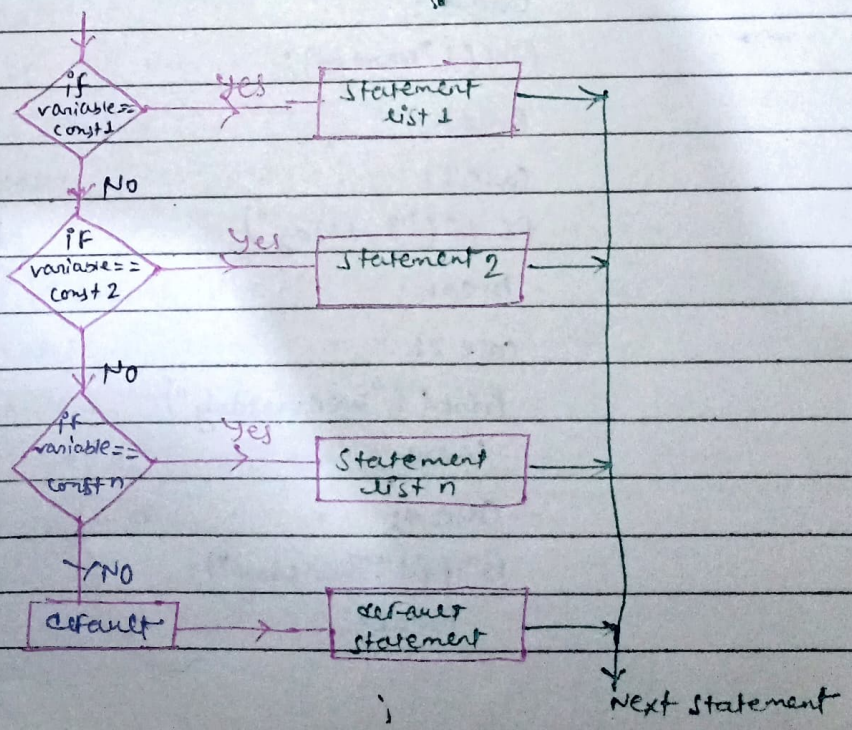 if
variable==
const1
yes
Statement
list 1
NO
if
variable==
const 2
yes
Statement 2
NO
if
variable==
const n
yes
Statement
list n
NO
default
default
statement
Next statement